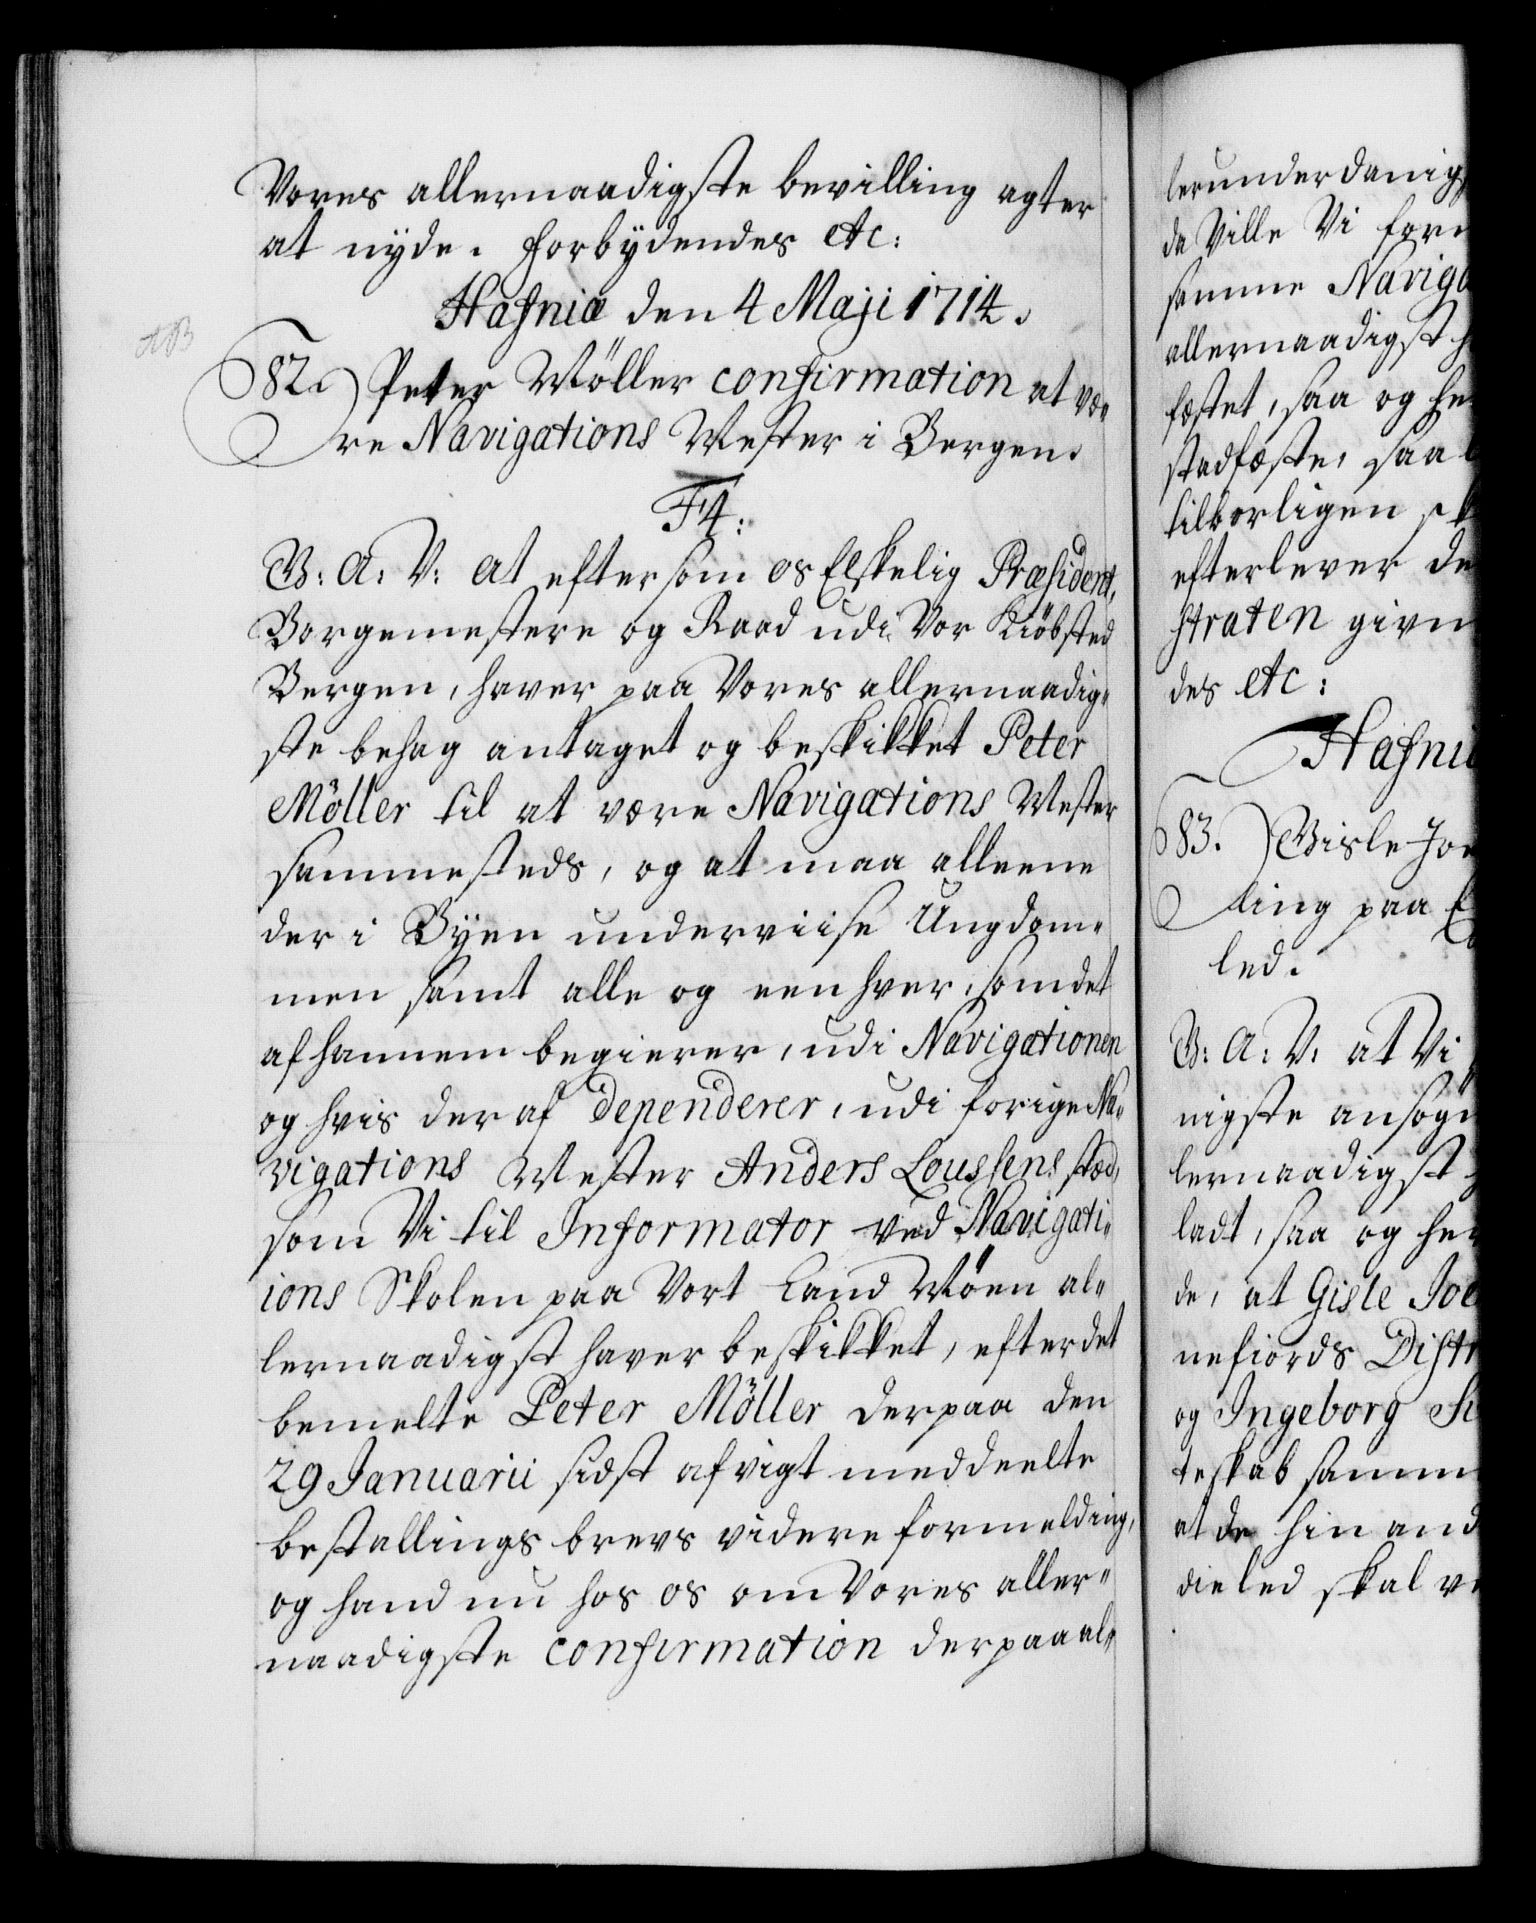 Vores allernaadigste bevilling agter
at nyde. Forbÿdendes etc:
Hafniæ den 4 Maji 1714.
82.) Peter Möller confirmation at væ-
re Navigations Mester i Bergen.
F4:
G: A: V: At eftersom os Elskelig Præsident,
Borgemestere og Raad udi Vor Kiöbsted
Bergen, haver paa Vores allernaadig-
ste behag antaget og beskikket Peter
Möller til at være Navigations Mester
sammesteds, og at maa alleene
der i Byen underviise Ungdom-
men samt alle og een hver, som det
af hannem begierer, udi Navigationen
og hvis deraf dependerer, udi forige Na-
vigations Mester Anders Loussens stæd,
som Vi til Informator ved Navigati-
ions Skolen paa Vort Land Möen al-
lernaadigst haver beskikket, efter det
bemelte Peter Möller derpaa den
29 Januarii sidst afvigt meddeelte
bestallings brevs videre formelding,
og hand nu hos os om Vores aller-
naadigste confirmation derpaa al-
lerunderdanig
da Ville Vi for
samme Naviga
allernaadigst h
fæstet, saa og he
stadfæste, saa
tilbørligen sk
efterlever de
straten givn
des etc:
Hafni
83.) Gisle Joe
ling paa
led.
G: A: V: at Vi
nigste ansögn
lernaadigst
ladt, saa og her
de, at Gisle Joe
nefiords Distr
og Ingeborg Si
teskab samm
at de hinand
die led skal ve